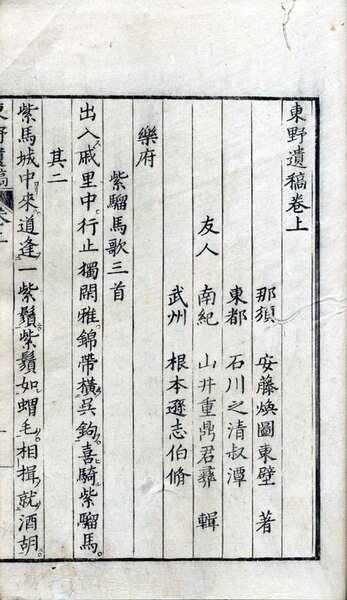 東野遺稿卷上
那須 安藤煥圖東壁 著
東都 石川之清叔潭
友人 南紀 山井重鼎君彝 輯
武州 根本遜志伯脩
樂府
紫騮馬歌三首
出入戚里中行止獨閑雅錦帶橫吳鉤喜騎紫騮馬
其二
紫馬城中來道逢一紫鬚紫鬚如蝟毛相揖就酒胡